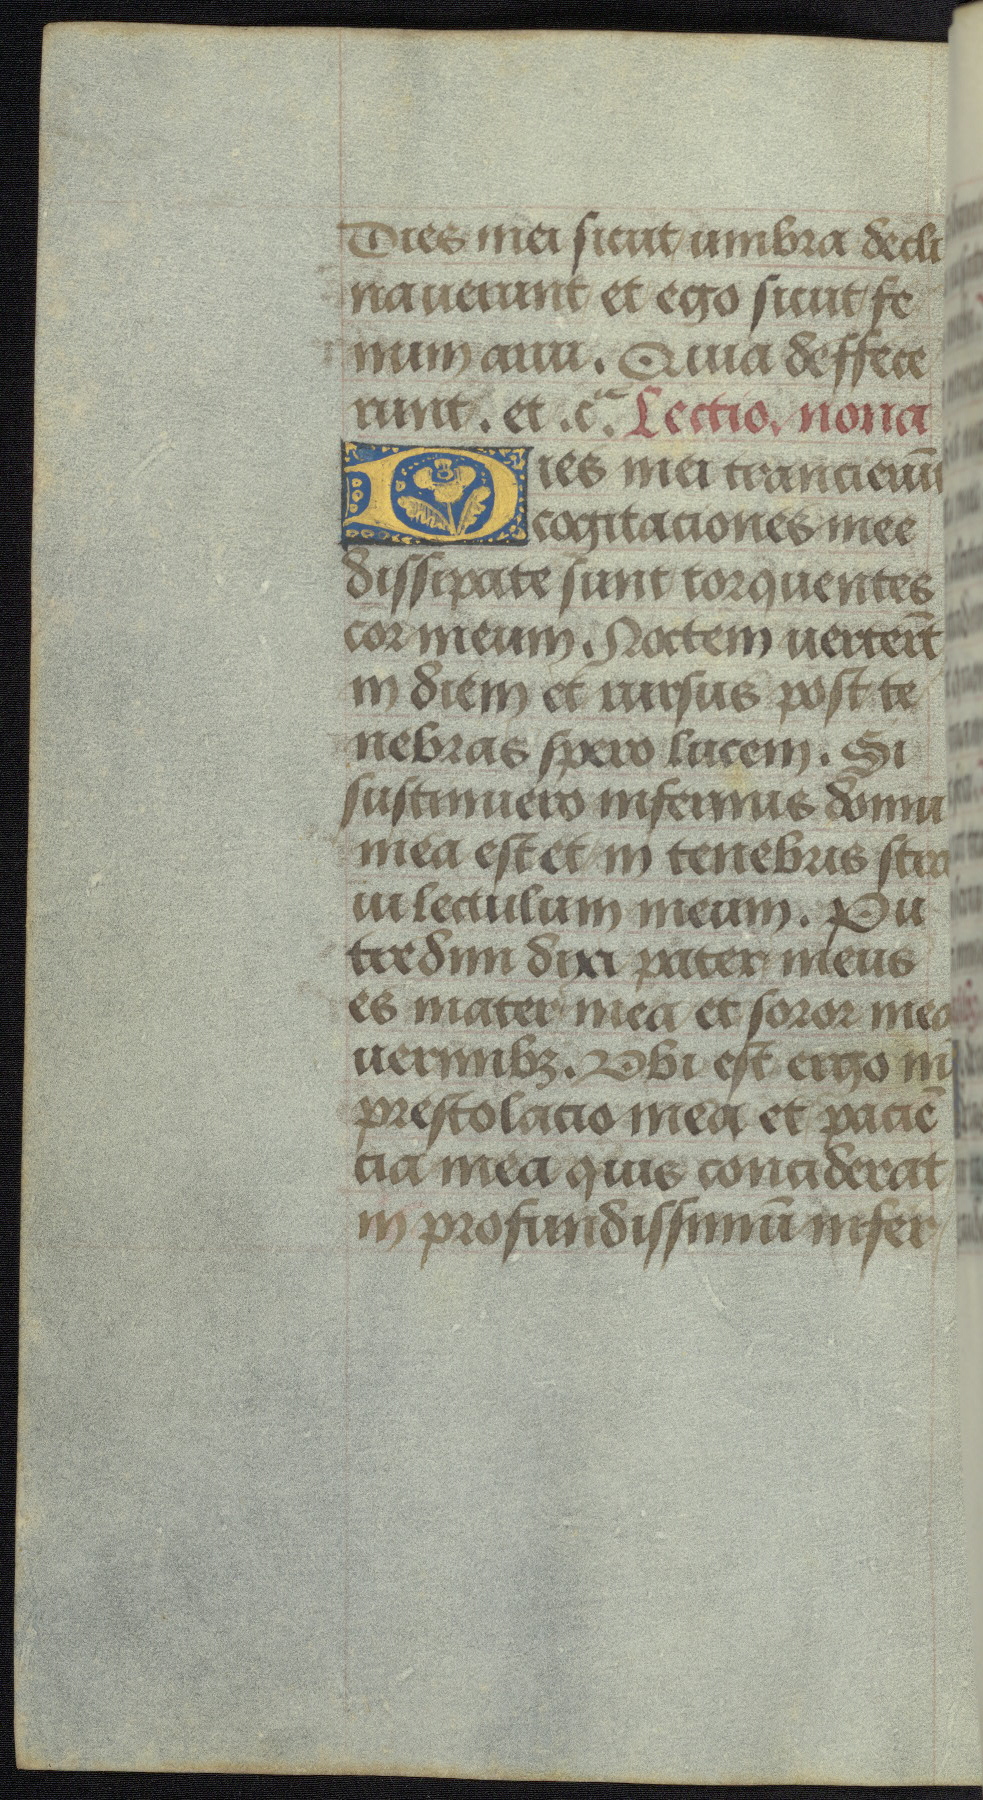 Dies mei sicut umbra decli
nauerunt et ego sicut fe
num arui. Quia deffece
runt. et .c͞. Lectio. nona
Dies mei trancierūt
cogitaciones mee
dissipate sunt torquentes
cor meum. Noctem uerterūt
in diem et rursus post te
nebras spero lucem. Si
sustinuero infernus domus
mea est et in tenebris stra
ui lectulum meum. Pu
tredini dixi pater meus
es mater mea et soror mea
uermibꝫ. Vbi est ergo nūc
prestolacio mea et paciē
cia mea quis conciderat
in profundissimū infer